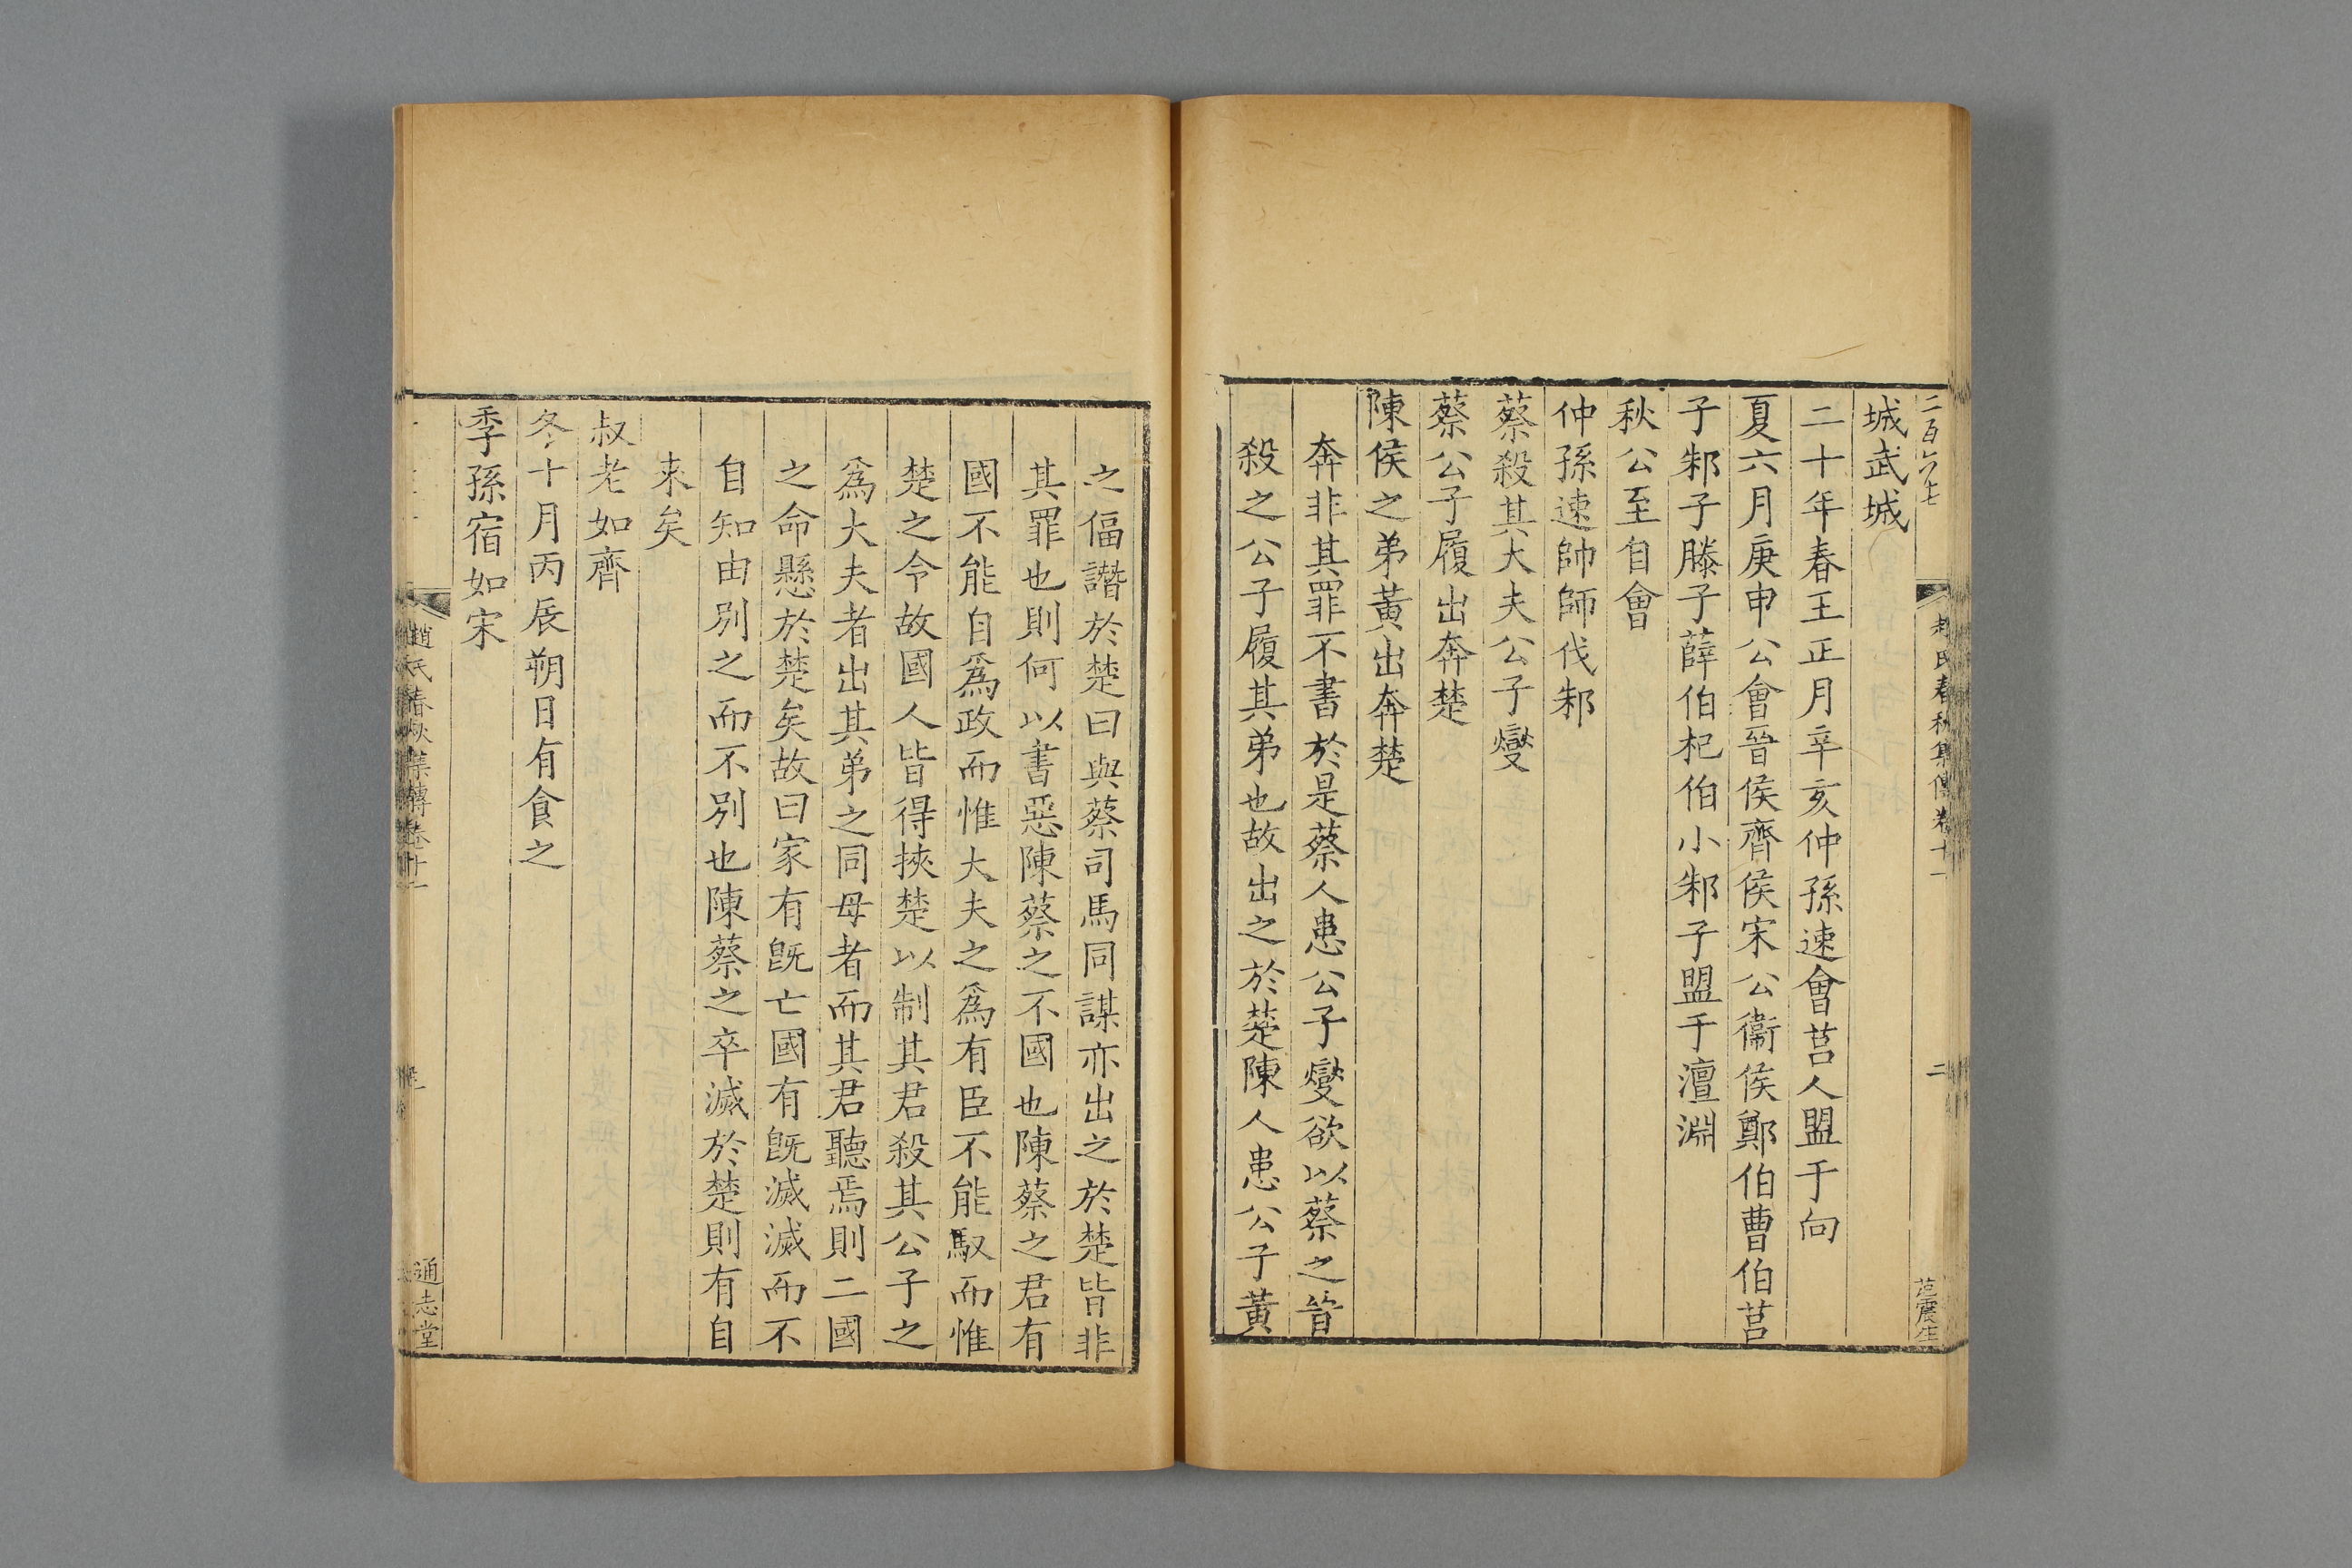 二百六七
趙氏春秋集傳卷十一
二
范震生
城武城
二十年春王正月辛亥仲孫速會莒人盟于向
夏六月庚申公會晉侯齊侯宋公衞侯鄭伯曹伯莒
子邾子滕子薛伯杞伯小邾子盟于澶淵
秋公至自會
仲孫速帥師伐邾
蔡殺其大夫公子燮
蔡公子履出奔楚
陳侯之弟黃出奔楚
奔非其罪不書於是蔡人患公子燮欲以蔡之
殺之公子履其弟也故出之於楚陳人患公子黃
之偪譖於楚曰與蔡司馬同謀亦出之於楚皆非
其罪也則何以書惡陳蔡之不國也陳蔡之君有
國不能自爲政而惟大夫之爲有臣不能馭而惟
楚之令故國人皆得挾楚以制其君殺其公子之
爲大夫者出其弟之同母者而其君聽焉則二國
之命懸於楚矣故曰家有旣亡國有旣滅滅而不
自知由別之而不別也陳蔡之卒滅於楚則有自
来矣
叔老如齊
冬十月丙辰朔日有食之
季孫宿如宋
趙氏春秋集傳卷十一
通志堂